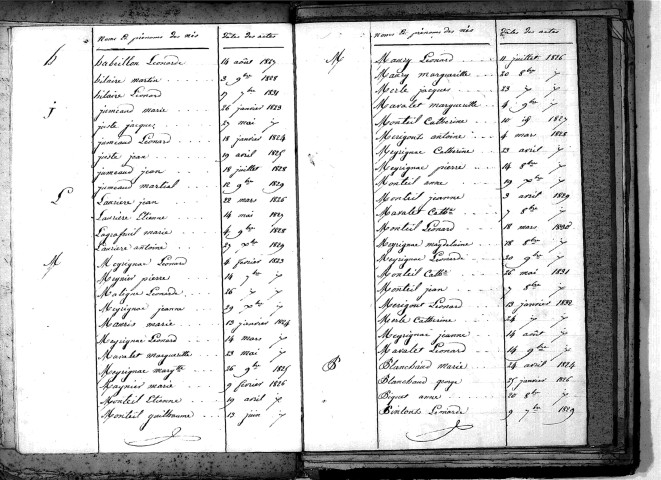 Noms & prénoms des nés Dates des actes
h habrillon Léonarde 14 août 1827
hilaire martin 3 9bre 1828
hilaire Léonard 9 7bre 1831
j jumeard marie 26 janvier 1823
juste jacques 27 mai y
jumeaud Léonard 18 janvier 1824
juste jean 19 avril 1825
jumeaud jean 18 juillet 1828
jumeaud martial 12 9bre 1829
L Laurière jean 22 mars 1826
Laurière Etienne 14 mai 1827
Lagrafeuil marie 4 9bre 1828
Laurière antoine 27 Xbre 1829
M Meyrignac Léonard 4 février 1823
Meynier pierre 14 7bre y
Maligne Léonarde 26 y y
Meyrignac jeanne 29 Xbre y
Mauris marie 13 janvier 1824
Meyrignac Léonard 14 mars y
Mavalet marguerite 23 mai y
Meyrignac margte 26 9bre 1825
Maynier marie 9 février 1826
Monteil Etienne 19 avril y
Monteil guilhaume 13 juin y
Noms & prénoms des nés Dates des actes
M Maury Léonard 11 juillet 1826
Maury marguerite 20 8bre y
Merle jacques 23 y y
Mavalet marguerite 4 9bre y
Monteil Catherine 10 1827
Merigout antoine 4 mars 1828
Meyrignac Catherine 23 avril y
Meyrignac pierre 14 8bre y
Monteil anne 19 Xbre y
Monteil jeanne 3 avril 1829
Mavalet Cathne 7 8bre y
Monteil Léonard 18 mars 1830
Meyrignac magdelaine 18 8bre y
Meyrignac Léonarde 30 9bre y
Monteil Cathne 26 mai 1831
Monteil jean 7 8bre y
Merigout Léonard 13 janvier 1832
Merle Catherine 24 y y
Meyrignac jeanne 14 août y
Mavalet Léonard 14 9bre y
P Blanchaud marie 24 avril 1824
Blanchaud 25 janvier 1826
Piquet anne 20 8bre y
Léonarde 9 7bre 1829